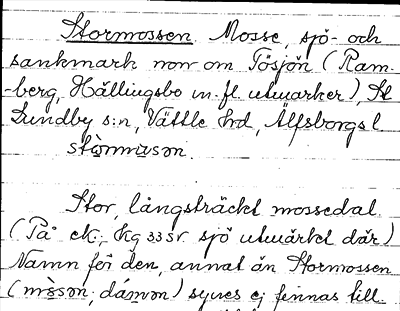 Stormossen. Mosse, sjö- och
sankmark nov om Tösjön (Ram-
-berg, Hällingsbo m. fl utmarker), St
Lundby s:n, Vättle hd, Älfsborgs l
Stor, långsträckt mossedal.
(På ek., kg 33 sv sjö utmärkt där)
Namn för den, annat än Stormossen
synes ej finnas till.